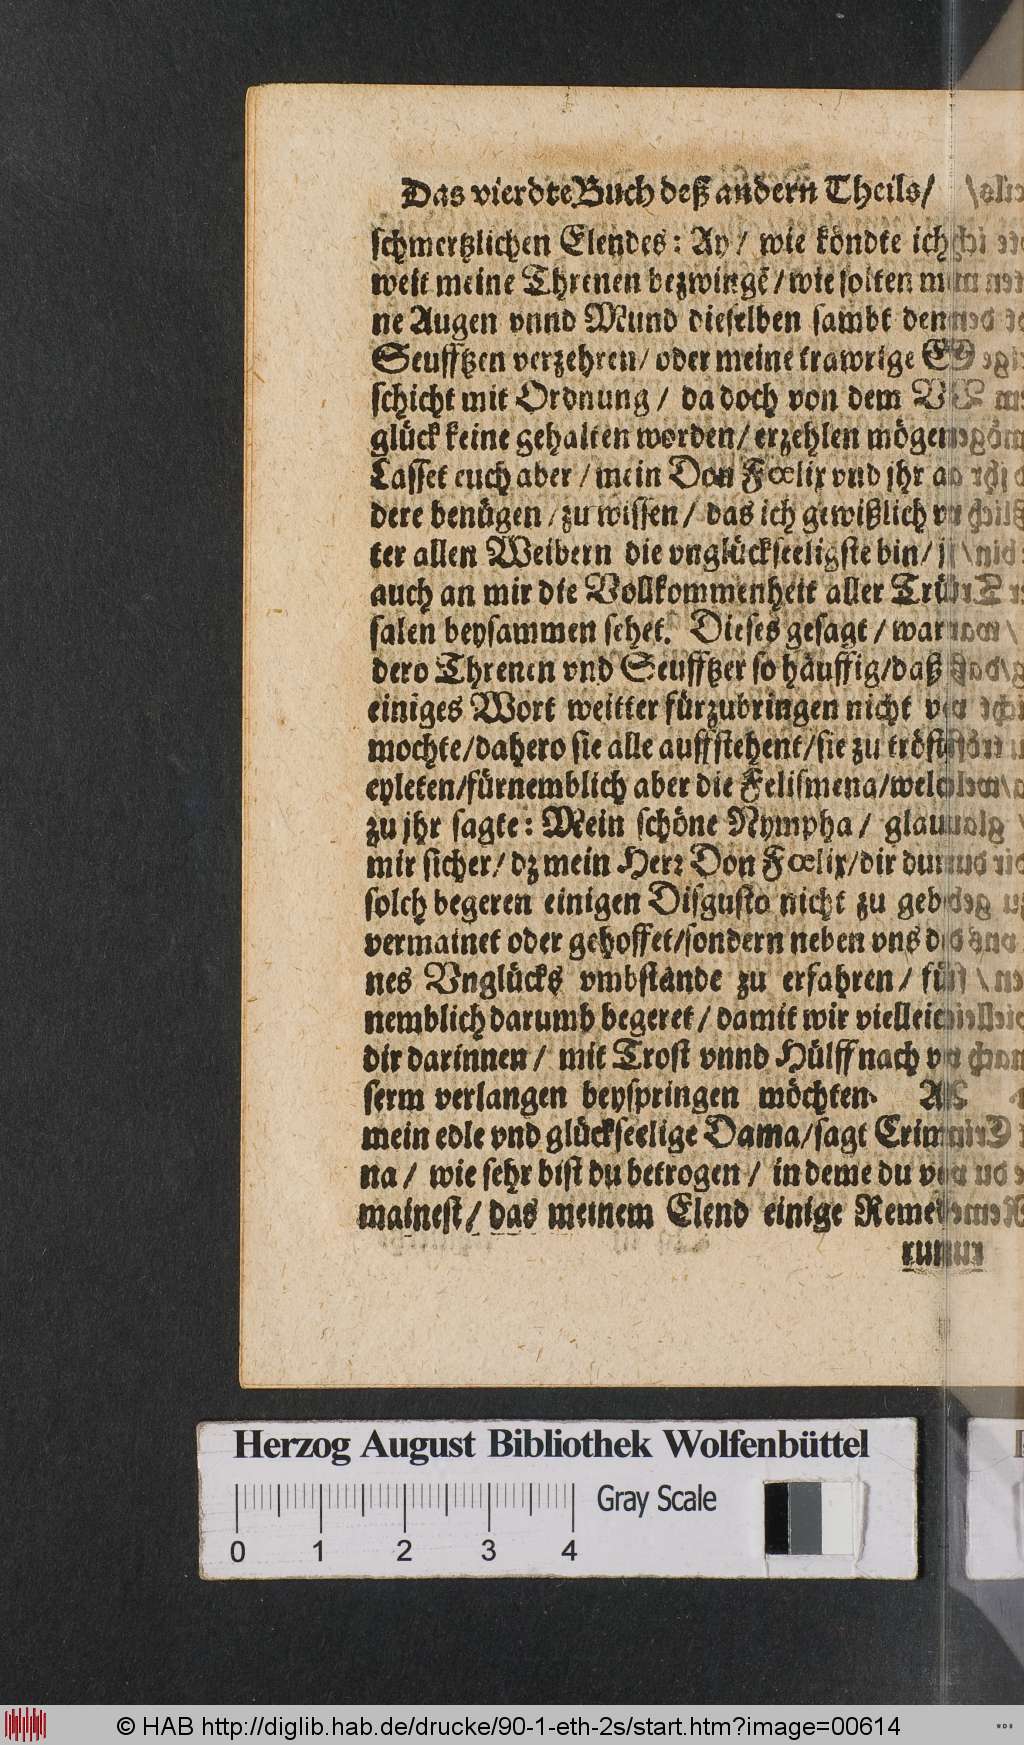 Das vierdte Buch deß andern Theils/
schmertzlichen Elendes: Ay/ wie köndte ich
weit meine Threnen bezwingē/wie solten
ne Augen vnnd Mund dieselben sambt den
Seufftzen verzehren/ oder meine trawrige
schicht mit Ordnung/ da doch von dem
glück keine gehalten worden/ erzehlen mögen
Lasset euch aber/ mein Don Fœlix vnd jhr
dere benügen/ zu wissen/ das ich gewißlich
ter allen Weibern die vnglückseeligste bin/
auch an mir die Vollkommenheit aller Trüb
salen beysammen sehet. Dieses gesagt/ war
dero Threnen vnd Seufftzer so häuffig/daß
einiges Wort weitter fürzubringen nicht
mochte/dahero sie alle auffstehent/sie zu
eyleten/fürnemblich aber die Felismena/
zu jhr sagte: Mein schöne Nympha/
mir sicher/ dz mein Herz Don Fœlix/dir
solch begeren einigen Disgusto nicht zu
vermainet oder gehoffet/sondern neben vns
nes Vnglücks vmbstände zu erfahren/
nemblich darumb begeret/ damit wir
dir darinnen/ mit Trost vnnd Hülff nach
serm verlangen beyspringen möchten.
mein edle vnd glückseelige Dama/sagt
na/ wie sehr bist du betrogen/ in deme du
mainest/ das meinem Elend einige
Herzog August Bibliothek Wolfenbüttel
Gray Scale
0 1 2 3 4
© HAB http://diglib.hab.de/drucke/90-1-eth-2s/start.htm?image=00614